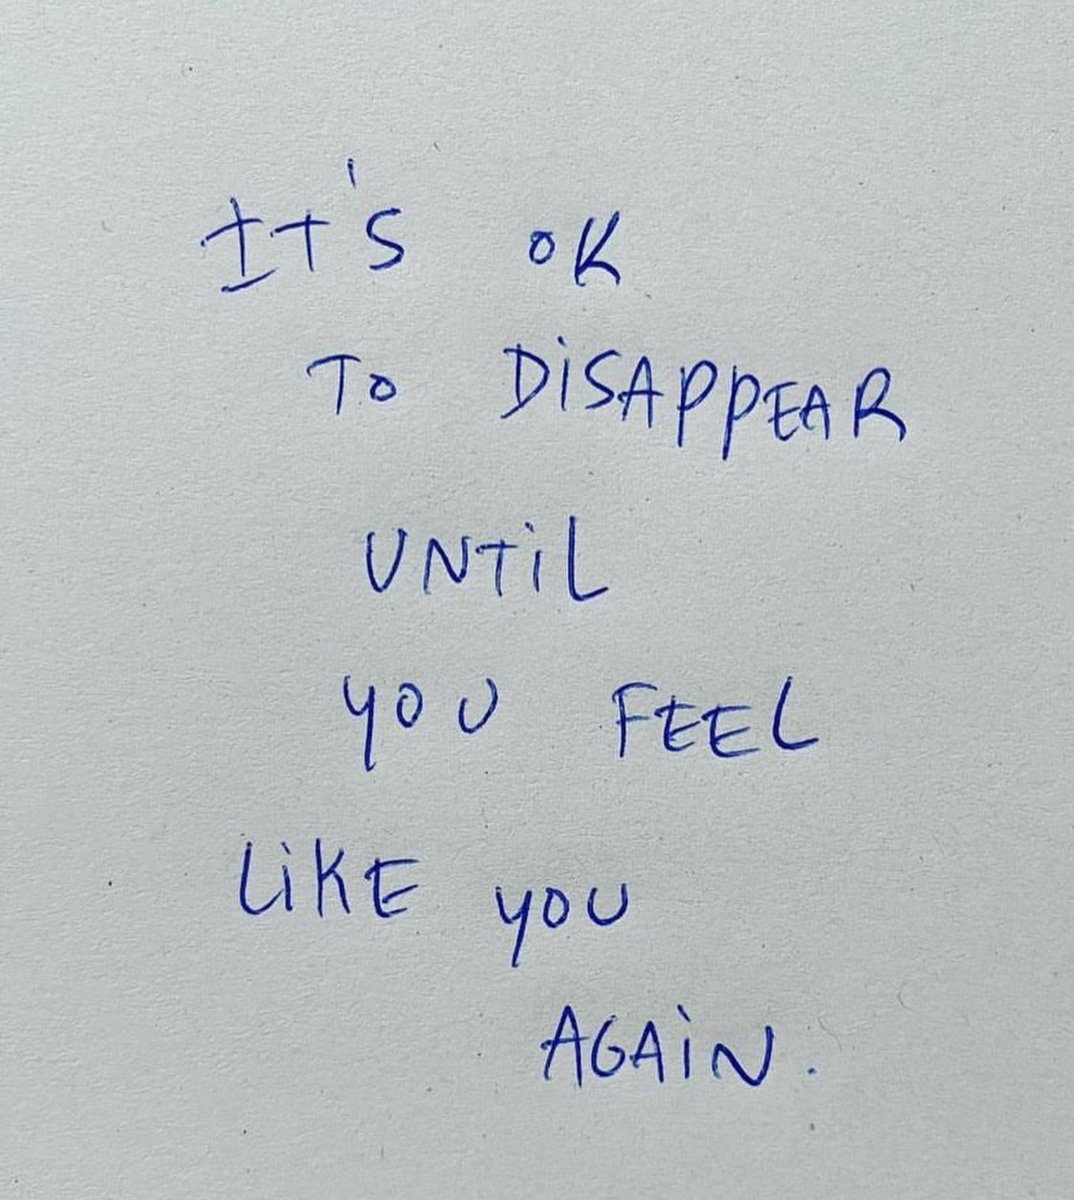 It's OK
TO DiSAPPEAR
UNTiL
YOU FEEL
LiKE YOU
AGAiN.